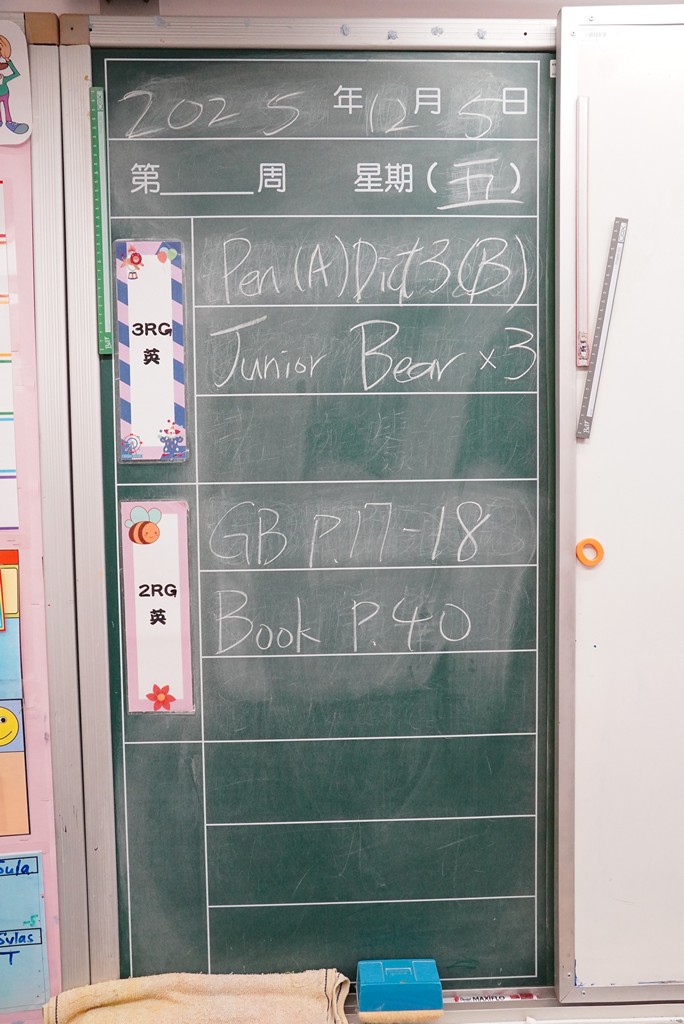 2025年12月5日
第______周 星期(五)
3RG
英
Pen(A) Dict3(B)
Junior Bear ×3
2RG
英
GB P.17-18
Book P.40
Sula
Sulas
T
MAXIFLO